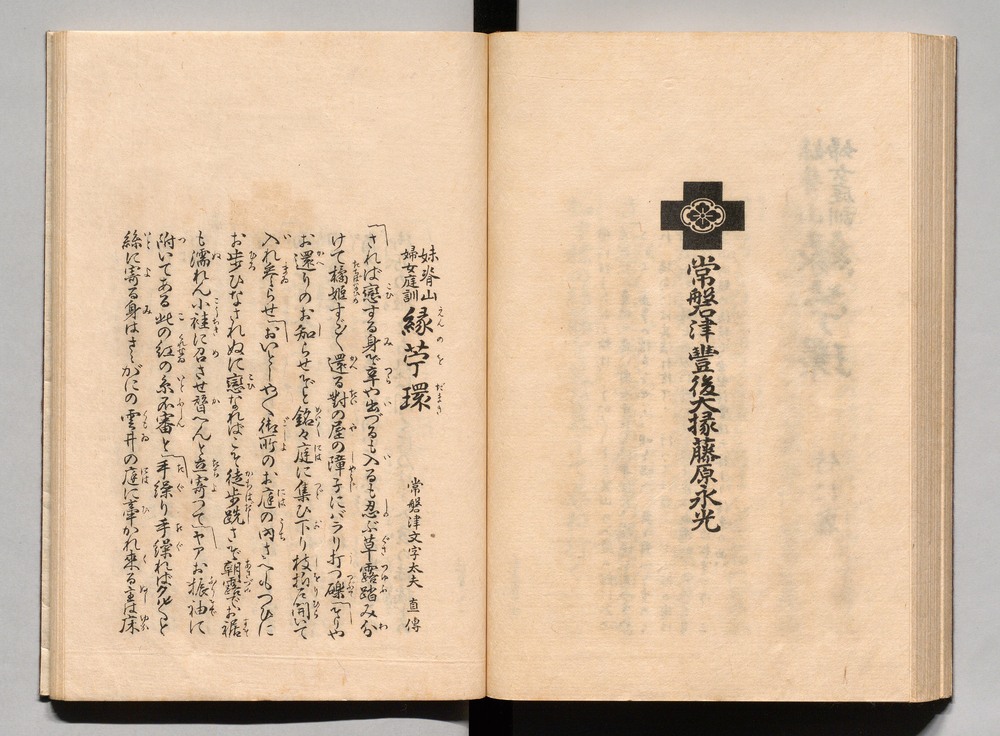 常磐津豐後大掾藤原永光
妹脊山
婦女庭訓
縁苧環
えんのをだまき
常磐津文字太夫 直傳
されば戀する身ぞ辛や出づるも入るも忍ぶ草露踏み分
けて橘姫すごすご還る對の屋の障子にバラリ打つ礫そりや
お還りのお知らせぞと銘々庭に集ひ下り枝折戸開いて
入れ參らせおいとしやく御所のお庭の内さへもつひに
お歩ひなされぬに戀なればこそ徒歩跣さぞ朝露でお裾
も濡れん小袿に召させ替へんと立寄つてヤアお振袖に
附いてある此の紅の糸不審と手繰り手繰ればクルくと
絲に寄る身はさゝがにの雲井の庭に牽かれ來る主は床